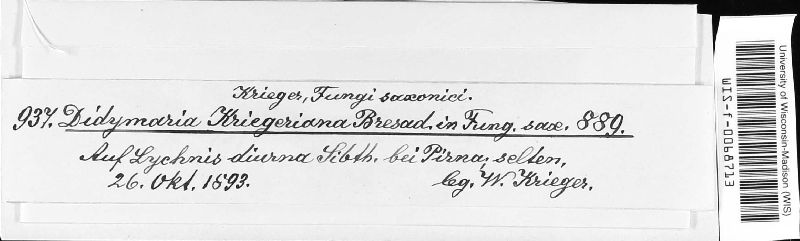 Krieger, Fungi saxonici.
937. Didymaria Kriegeriana Bresad. in Fung. sax. 889.
Auf Lychnis diurna Sibth. bei Pirna, selten,
26. Okt. 1893. leg. W. Krieger.
University of Wisconsin-Madison (WIS)
WIS-f-0068713